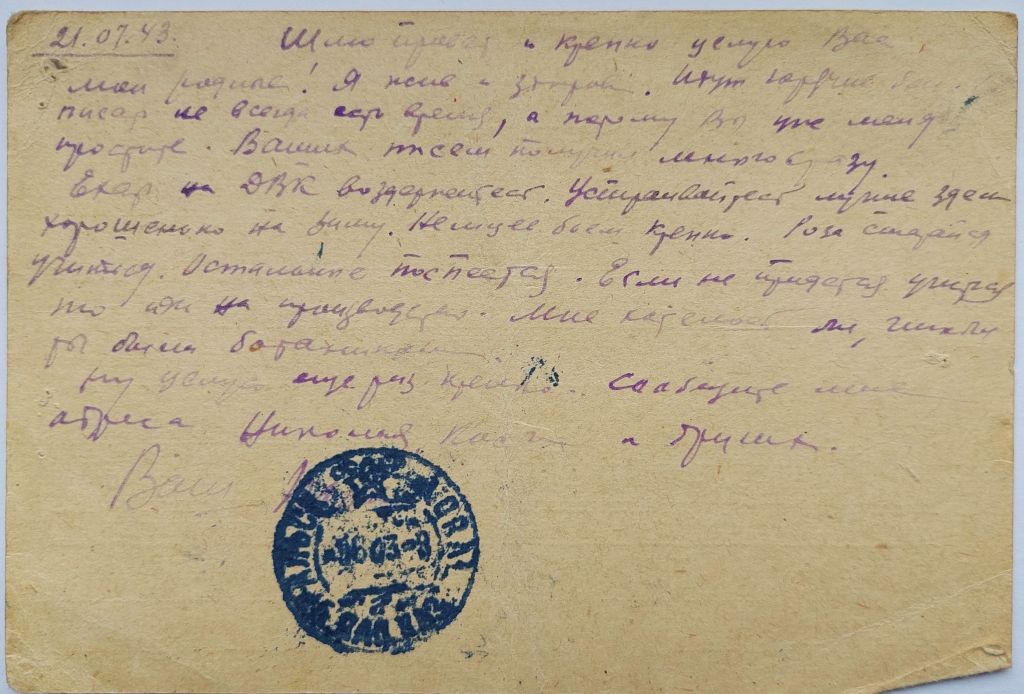 21.07.43.
Шлю привет и крепко целую Вас
мои родные! Я жив и здоров. Идут горячие бои.
писать не всегда есть время, а потому Вы уже меня
простите. Ваших писем получил много сразу.
Ехать на ДВК воздержитесь. Устраивайтесь лучше здесь
хорошенько на зиму. Немцев бьем крепко. Роза старайся
учиться. Остальное поспеется. Если не придется учиться
то иди на производство. Мне хотелось бы, чтобы
ты была ботаником
Ну целую еще раз крепко. Сообщите мне
адреса Николая Кости и Гриши.
Ваш